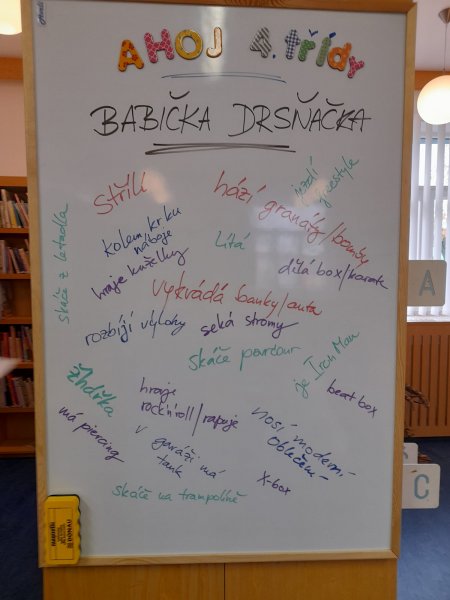 AHOJ 4. třídy
BABIČKA DRSŇAČKA
střílí
hází
granáty/bomby
jezdí
freestyle
skáče z letadla
kolem krku
náboje
lítá
hraje kuželky
dělá box/karate
vykrádá banky/auta
rozbíjí výlohy
seká stromy
skáče parcour
je Iron Man
žhářka
hraje
rock'n'roll/rapuje
beat box
má piercing
v
garáži má
tank
nosí moderní
oblečení
X-box
skáče na trampolíně
A
C